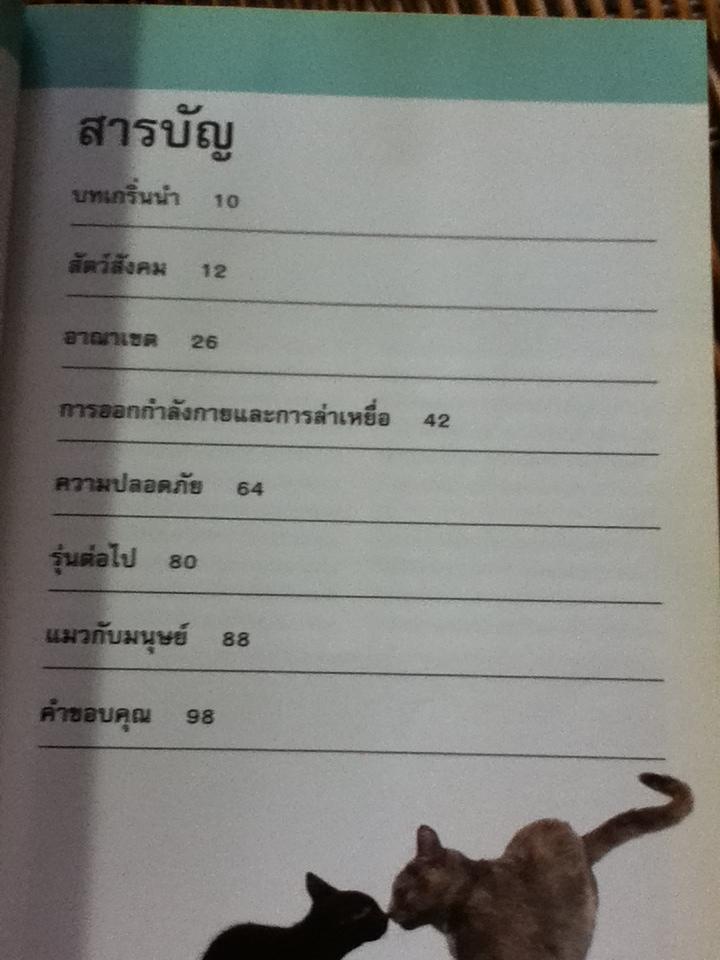 สารบัญ
บทเกริ่นนำ 10
สัตว์สังคม 12
อาณาเขต 26
การออกกำลังกายและการล่าเหยื่อ 42
ความปลอดภัย 64
รุ่นต่อไป 80
แมวกับมนุษย์ 88
คำขอบคุณ 98